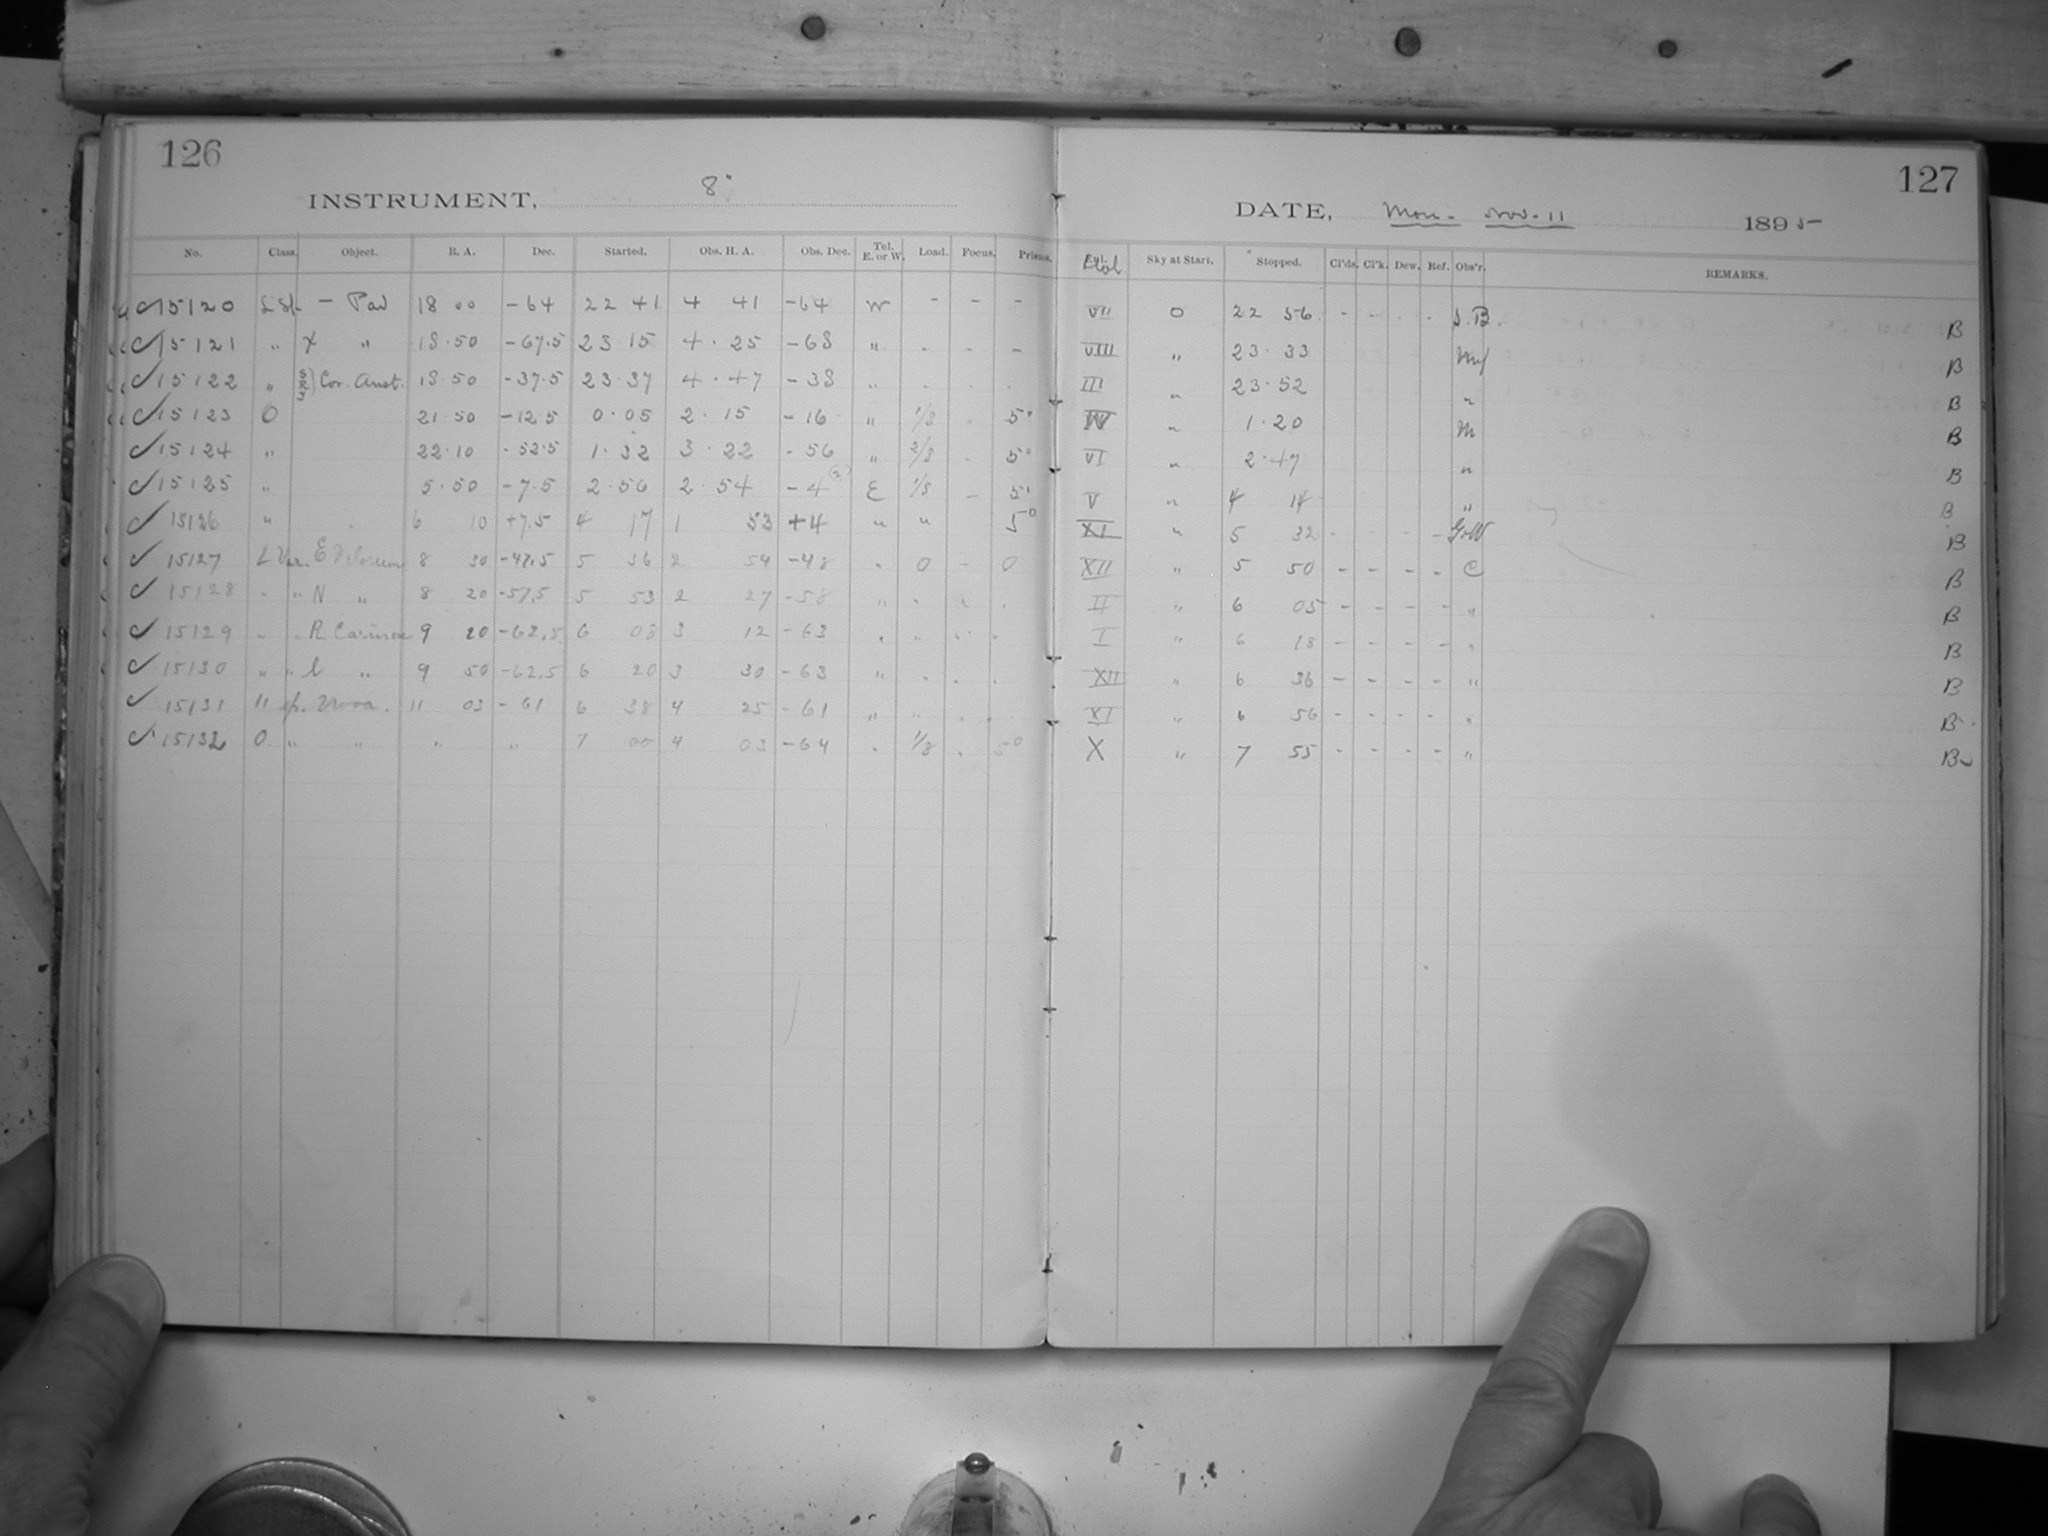 126
127
INSTRUMENT, 8"
DATE, Mon. Nov. 11 1895
No. Class. Object. R. A. Dec. Started. Obs. H. A. Obs. Dec. Tel. E. or W. Load. Focus. Prisms. Sky at Start. Stopped. Cl'ds. Cl'k. Dew. Ref. Obs'r. REMARKS.
✓ 15120 L Sp. – Pav 18 00 -64 22 41 4 41 -64 W - - - VII 0 22 56 - - - S.B. B
✓ 15121 " χ " 18.50 -67.5 23 15 4.25 -68 " - - - VIII " 23.33 B
✓ 15122 " Cor. Aust. 18.50 -37.5 23.37 4.47 -38 " III " 23.52 " B
✓ 15123 O 21.50 -12.5 0.05 2.15 -16 " 1/8 5° IV " 1.20 M B
✓ 15124 " 22.10 -52.5 1.32 3.22 -56 " 2/8 5° VI " 2.47 " B
✓ 15125 " 5.50 -7.5 2.56 2.54 -4 (2) E 1/8 - 5° V " 4 14 " B
✓ 15126 " 6 10 +7.5 4 17 1 53 +4 " " 5° XI " 5 32 - - - - B
✓ 15127 L Var. E Velorum 8 30 -47.5 5 36 2 54 -48 " 0 - 0 XII " 5 50 - - - - C B
✓ 15128 " " N " 8 20 -57.5 5 53 2 27 -58 " " " " II " 6 05 - - - - " B
✓ 15129 " " R Carinae 9 20 -62.5 6 03 3 12 -63 " " " " I " 6 18 - - - - " B
✓ 15130 " " l " 9 50 -62.5 6 20 3 30 -63 " " " " XII " 6 36 - - - - " B
✓ 15131 " sp. Nova. 11 03 -61 6 38 4 25 -61 " " " " XI " 6 56 - - - - " B
✓ 15132 O. " " " " 7 00 4 03 -64 " 1/8 " 5° X " 7 55 - - - - " B